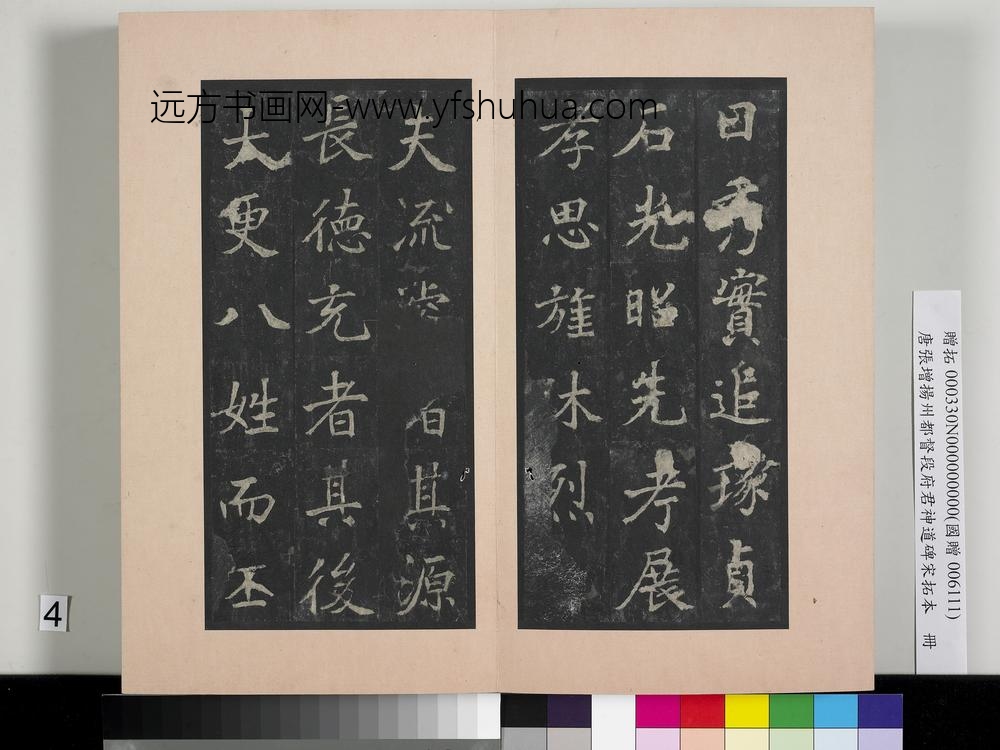 日秀實追琢貞
石光昭先考展
孝思旌木烈
夫流
其源
長德充者其後
大更八姓而不
远方书画网-www.yfshuhua.com
贈拓 000330N000000000(國贈 006111)
唐張增揚州都督段府君神道碑宋拓本 冊
4